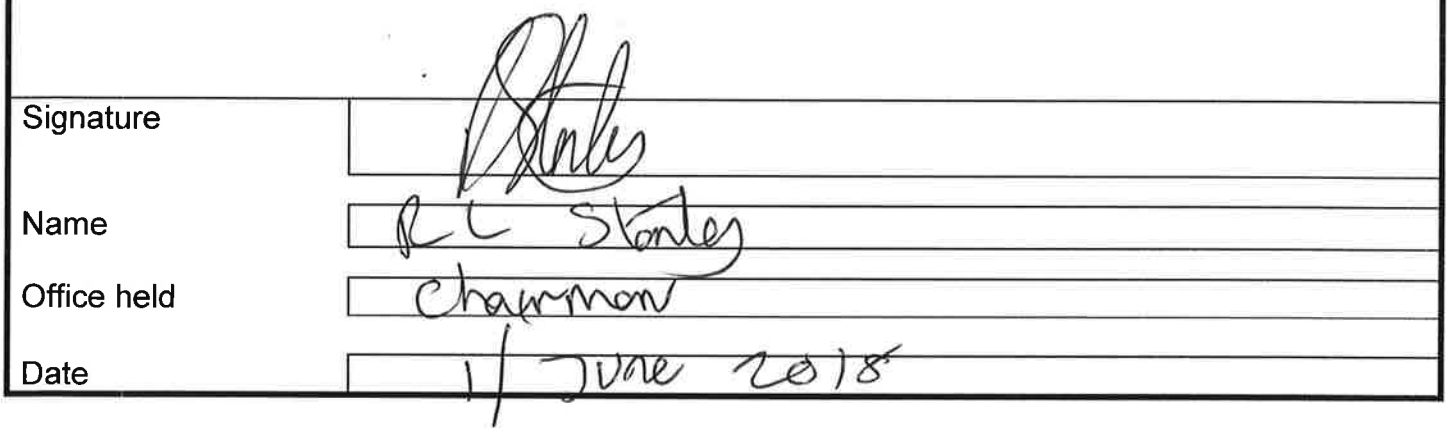 Signature
Name R L Stanley
Office held Chairman
Date 1/ June 2018